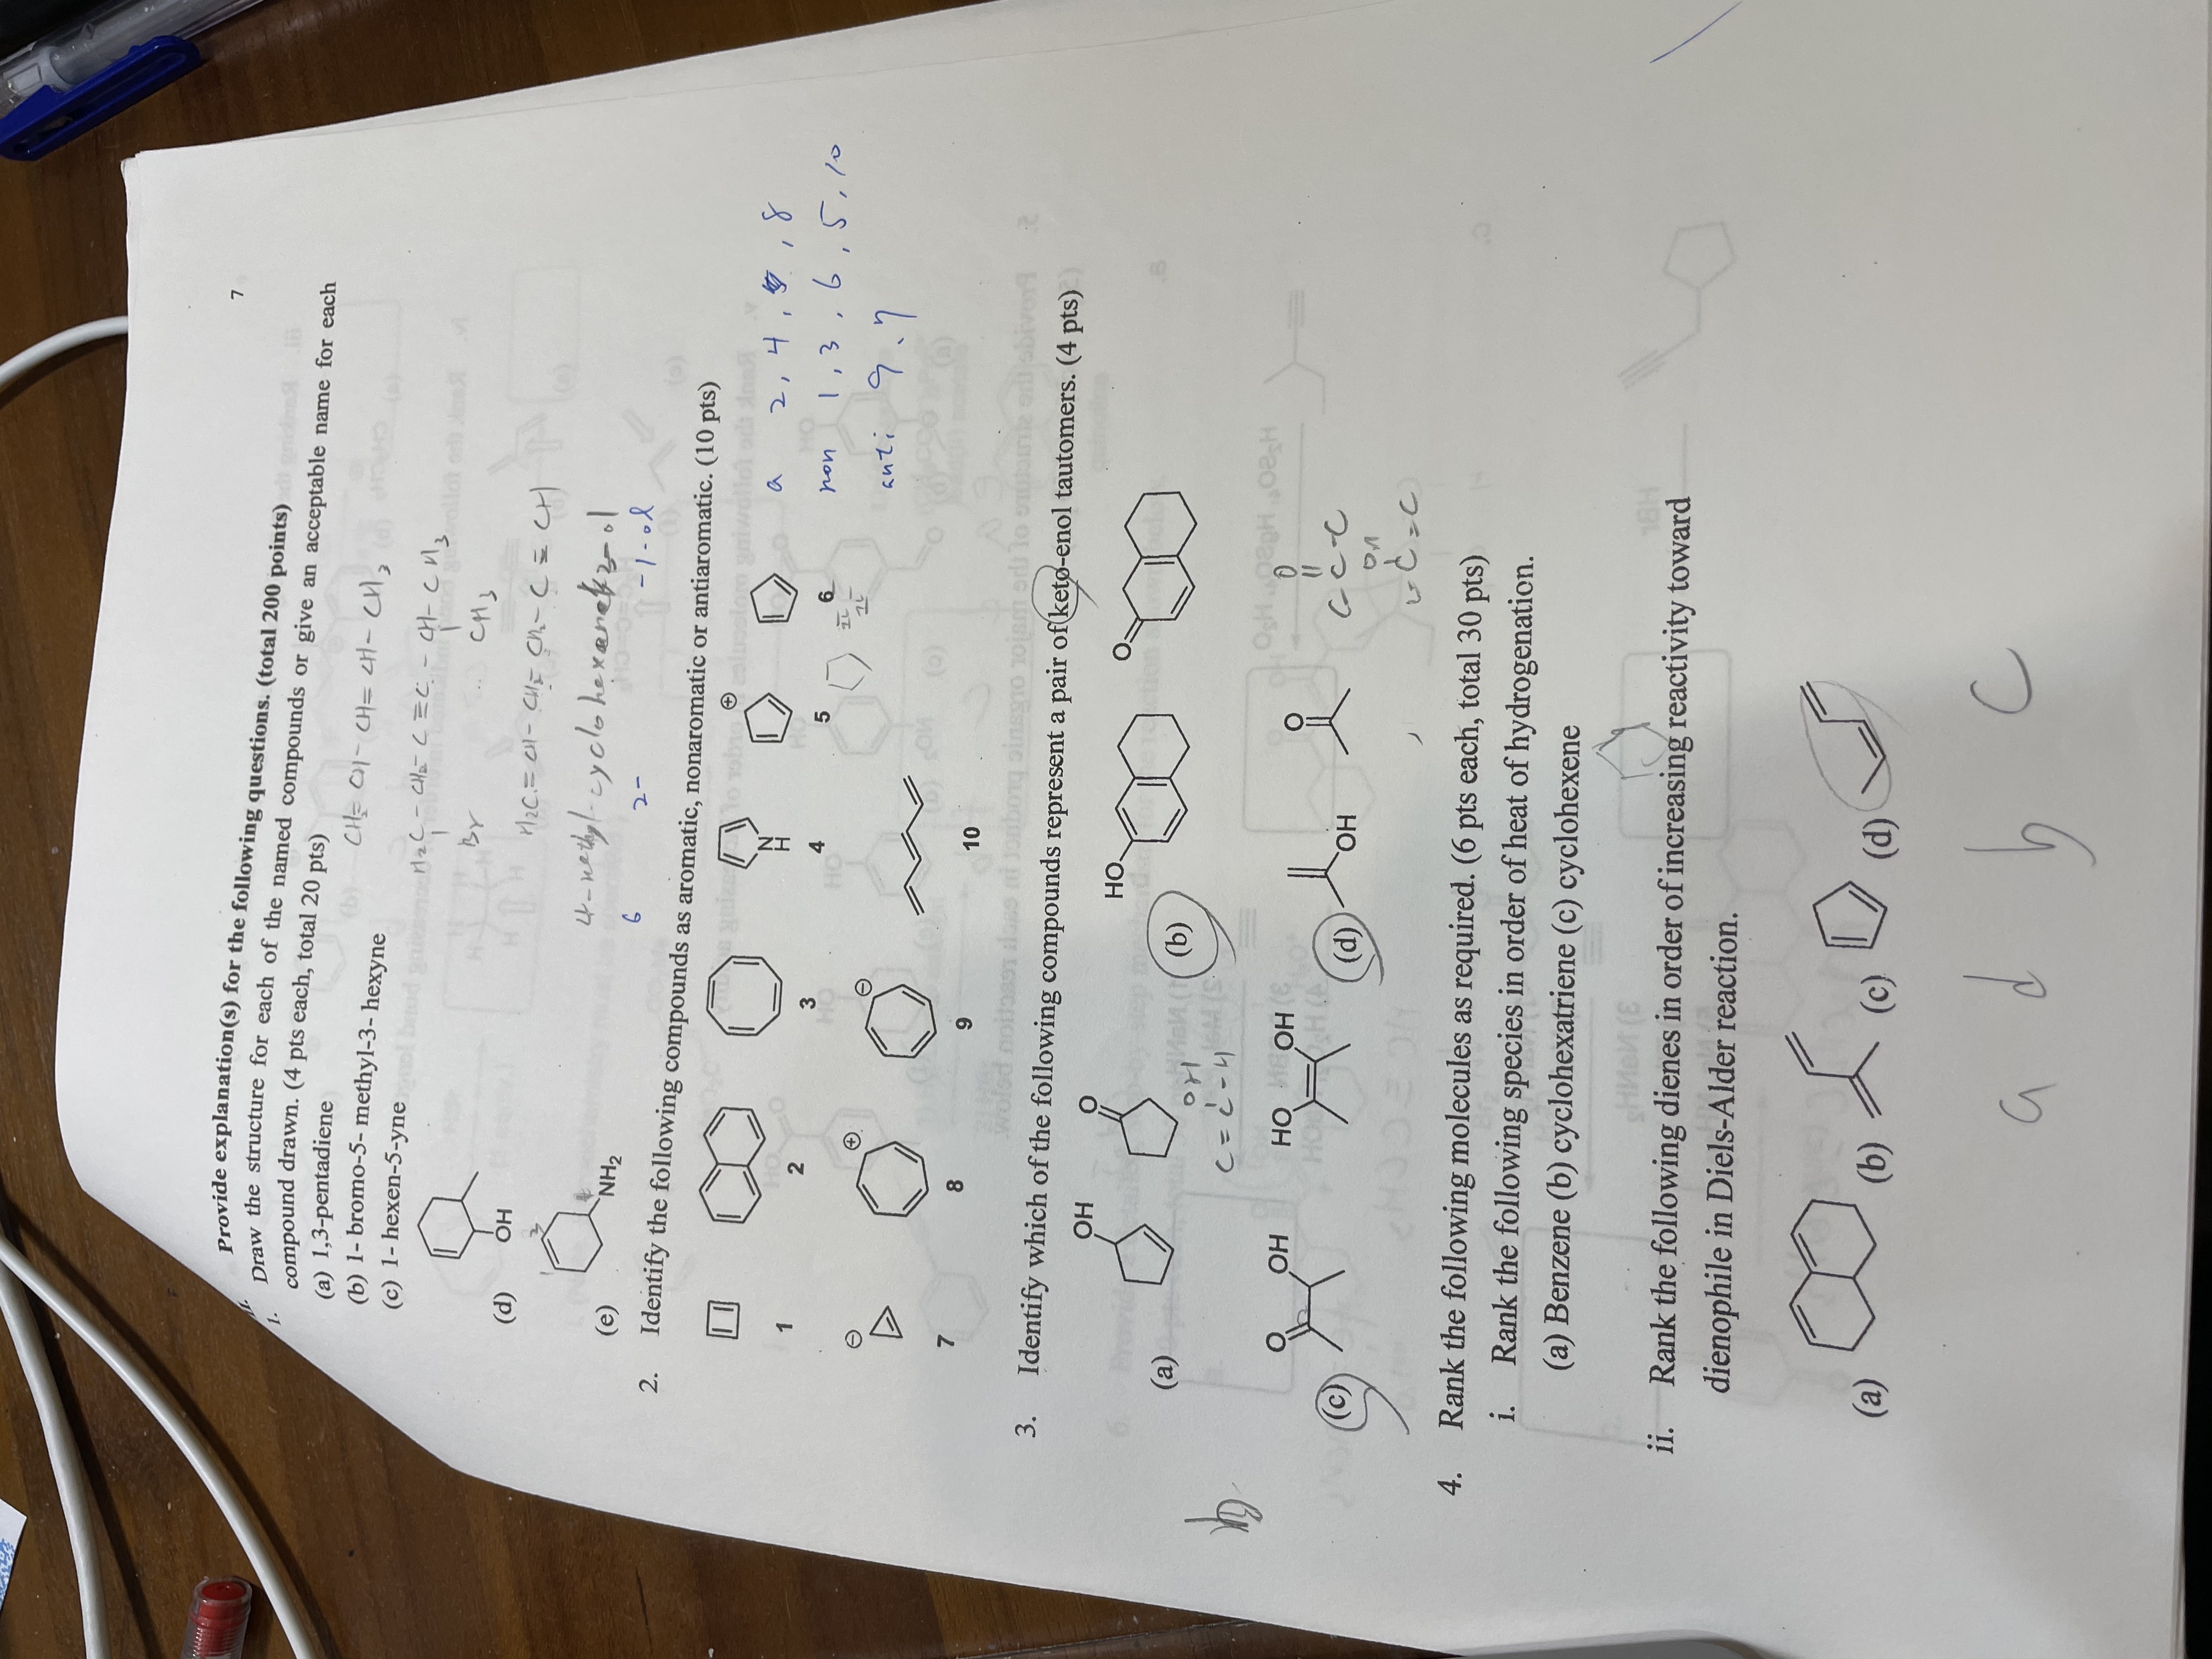 7
II. Provide explanation(s) for the following questions. (total 200 points)
1. Draw the structure for each of the named compounds or give an acceptable name for each
compound drawn. (4 pts each, total 20 pts)
(a) 1,3-pentadiene
CH2= CH- CH= CH- CH3
(b) 1- bromo-5- methyl-3- hexyne
H2C - CH2- C ≡ C - CH- CH3
Br CH3
(c) 1- hexen-5-yne
H2C = CH- CH2- CH2- C ≡ CH
(d) OH
4-methyl-cyclohexane
6 2- -1-ol
1 3 4
(e) NH2
2. Identify the following compounds as aromatic, nonaromatic or antiaromatic. (10 pts)
N
H
1 2 3 4 5 6
a 2, 4, , 8
non 1, 3, 6, 5, 10
anti 9, 7
7 8 9 10
3. Identify which of the following compounds represent a pair of keto-enol tautomers. (4 pts)
OH O HO O
(a) (b)
OH
C = C - H
b
O OH HO OH OH O
(c) (d)
O
C C - C
OH
C = C
4. Rank the following molecules as required. (6 pts each, total 30 pts)
i. Rank the following species in order of heat of hydrogenation.
(a) Benzene (b) cyclohexatriene (c) cyclohexene
ii. Rank the following dienes in order of increasing reactivity toward
dienophile in Diels-Alder reaction.
(a) (b) (c) (d)
a d b c